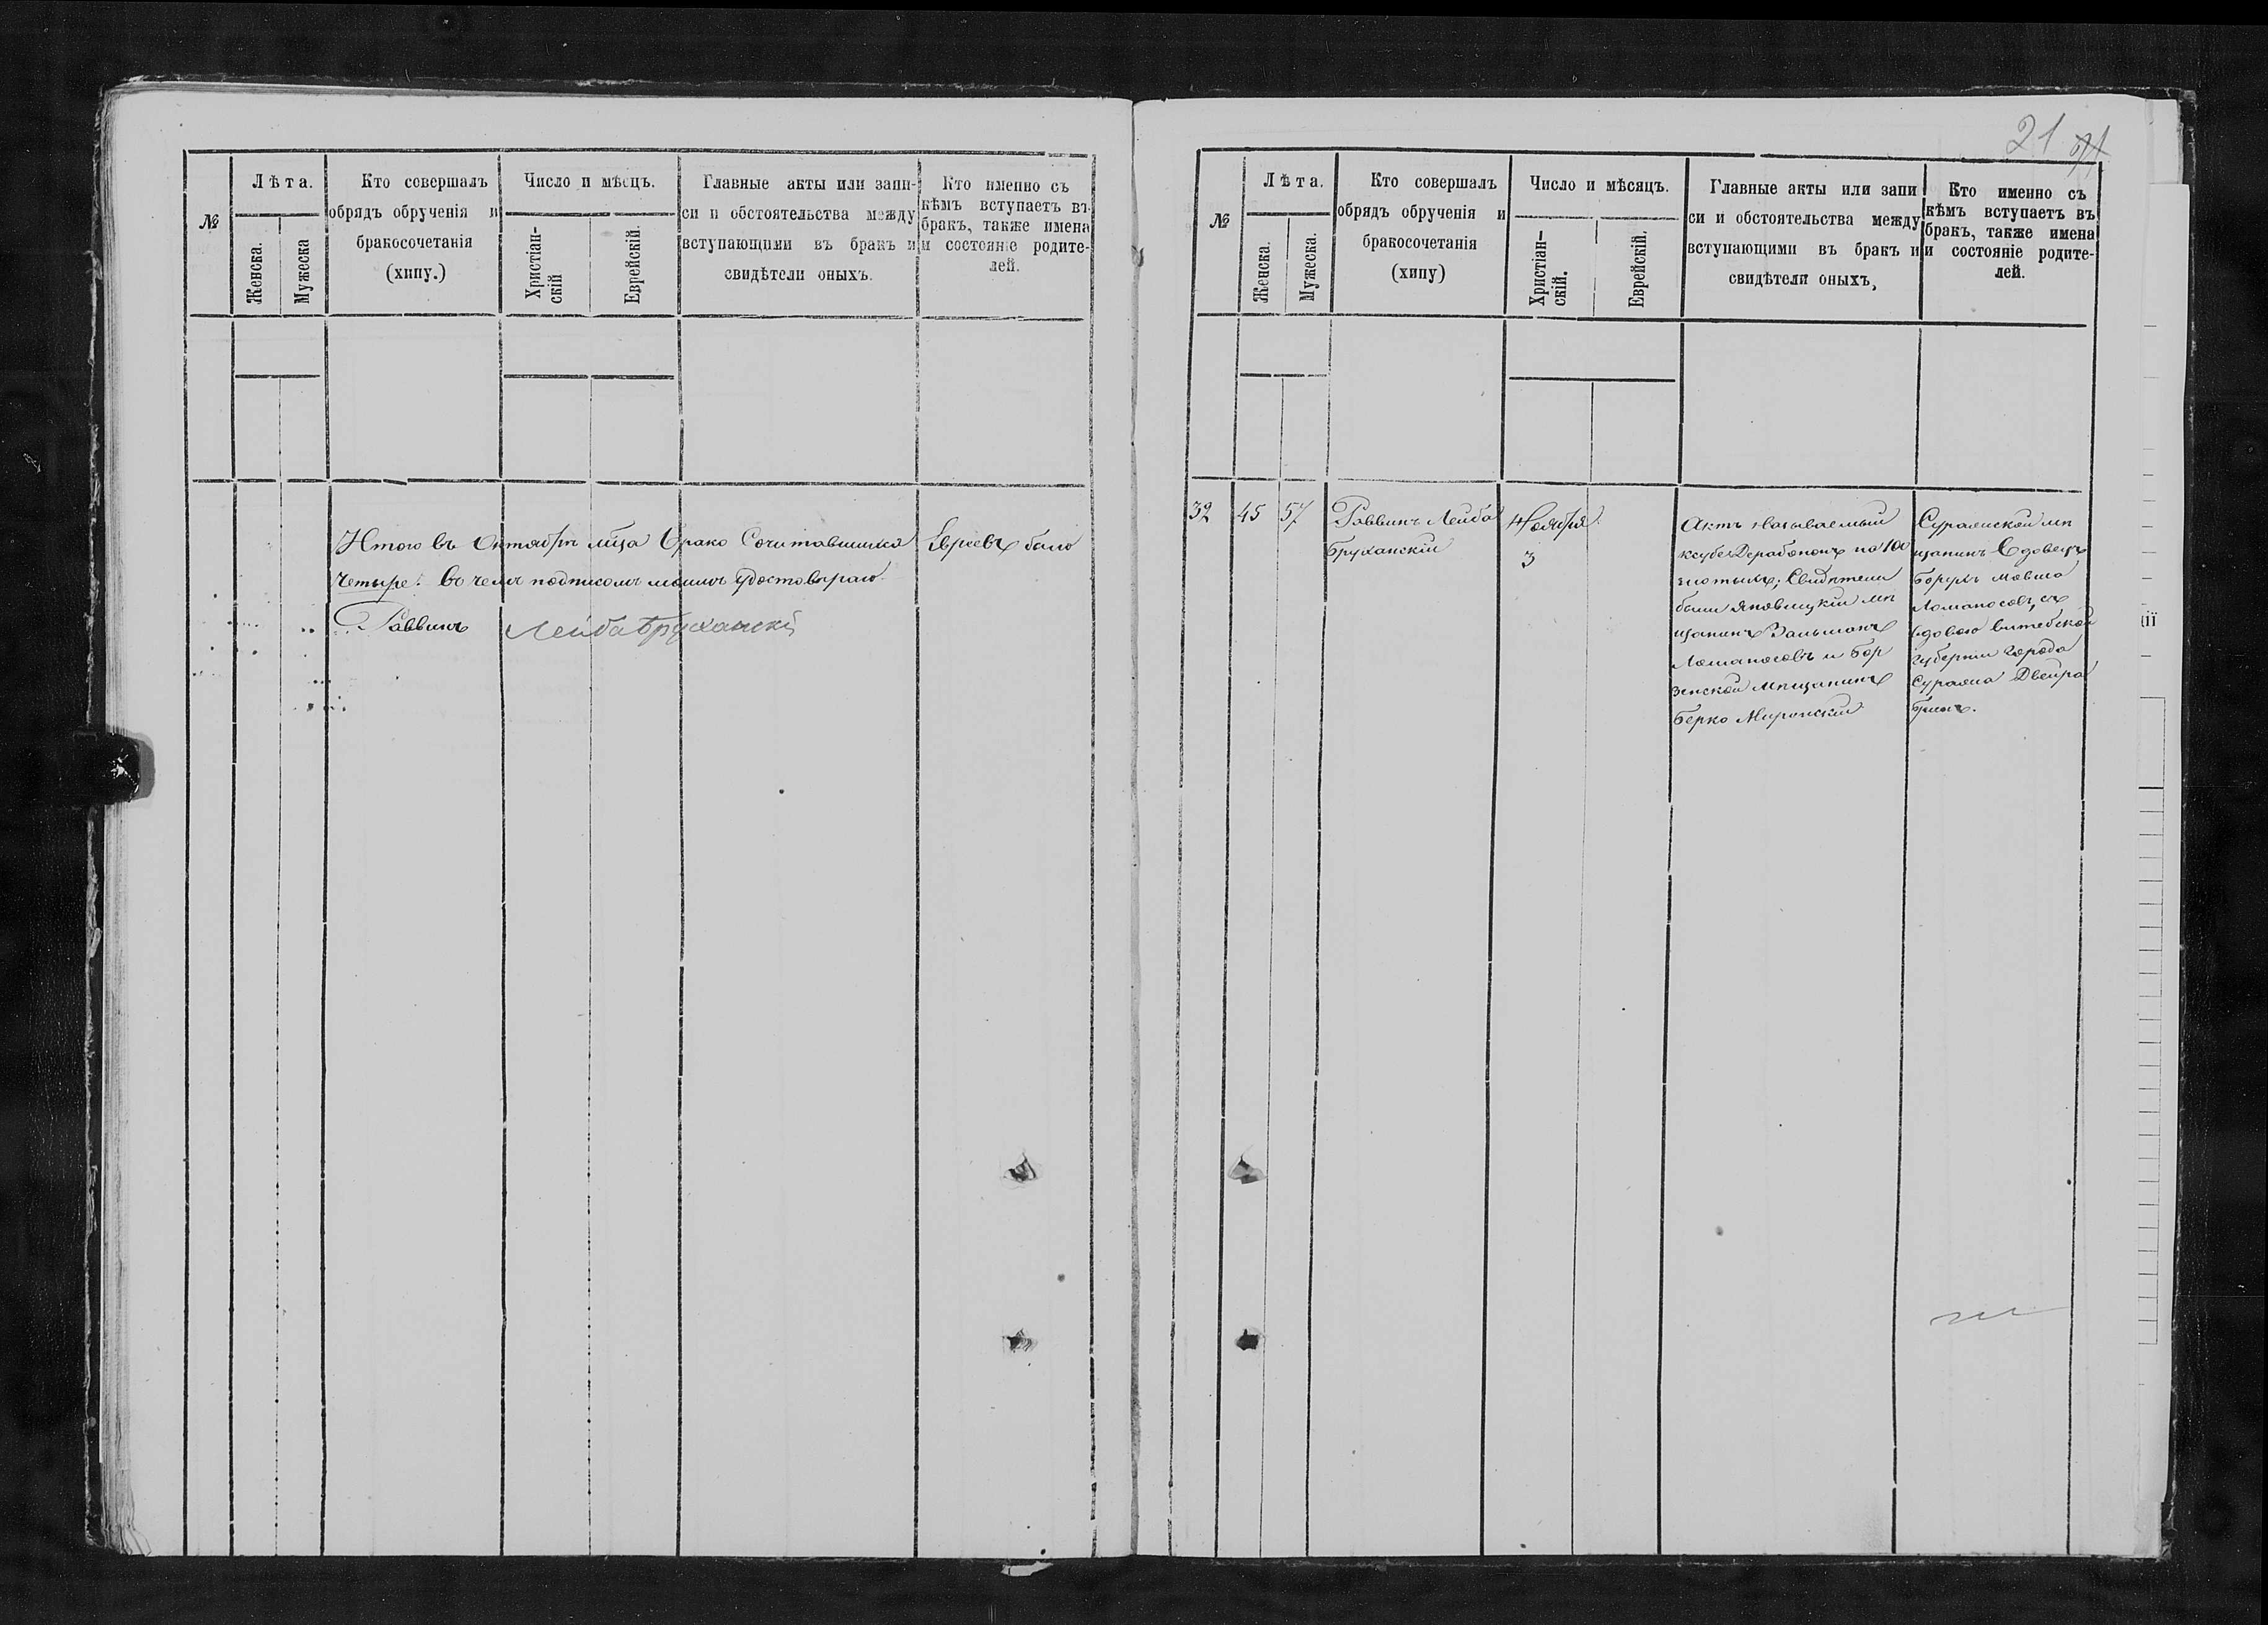 №
Лѣта.
Женска.
Мужеска
Кто совершалъ
обрядъ обрученія и
бракосочетанія
(хипу.)
Число и мѣсцъ.
Христіан-
скій
Еврейскій.
Главные акты или запи-
си и обстоятельства между
вступающими въ бракъ и
свидѣтели оныхъ.
Кто именно съ
кѣмъ вступаетъ въ
бракъ, также имена
и состояніе родите-
лей.
Итого въ Октябрѣ мѣца брако сочитавшихся Евреевъ было
четыре. во чемъ подписомъ моимъ удостовѣраю.
Раввинъ Лейба Бруханскій
21
№
Лѣта.
Женска.
Мужеска.
Кто совершалъ
обрядъ обрученія и
бракосочетанія
(хипу)
Число и мѣсяцъ.
Христіан-
скій.
Еврейскій.
Главные акты или запи
си и обстоятельства между
вступающими въ бракъ и
свидѣтели оныхъ,
Кто именно съ
кѣмъ вступаетъ въ
бракъ, также имена
и состояніе родите-
лей.
32
45
57
Раввинъ Лейба
Бруханскій
Ноября
3
Актъ называемый
ксубе Дерабононъ на 100
злотыхъ; Свидѣтели
были Яновицкій мѣ
щанинъ Залманъ
Ломаносовъ и Бор
зенской Мѣщанинъ
Берко Миронскій
Суражской мѣ
щанинъ Вдовецъ
Борухъ Мовша
Ломаносовъ, съ
вдовою витебской
губерніи города
Суража Двейра